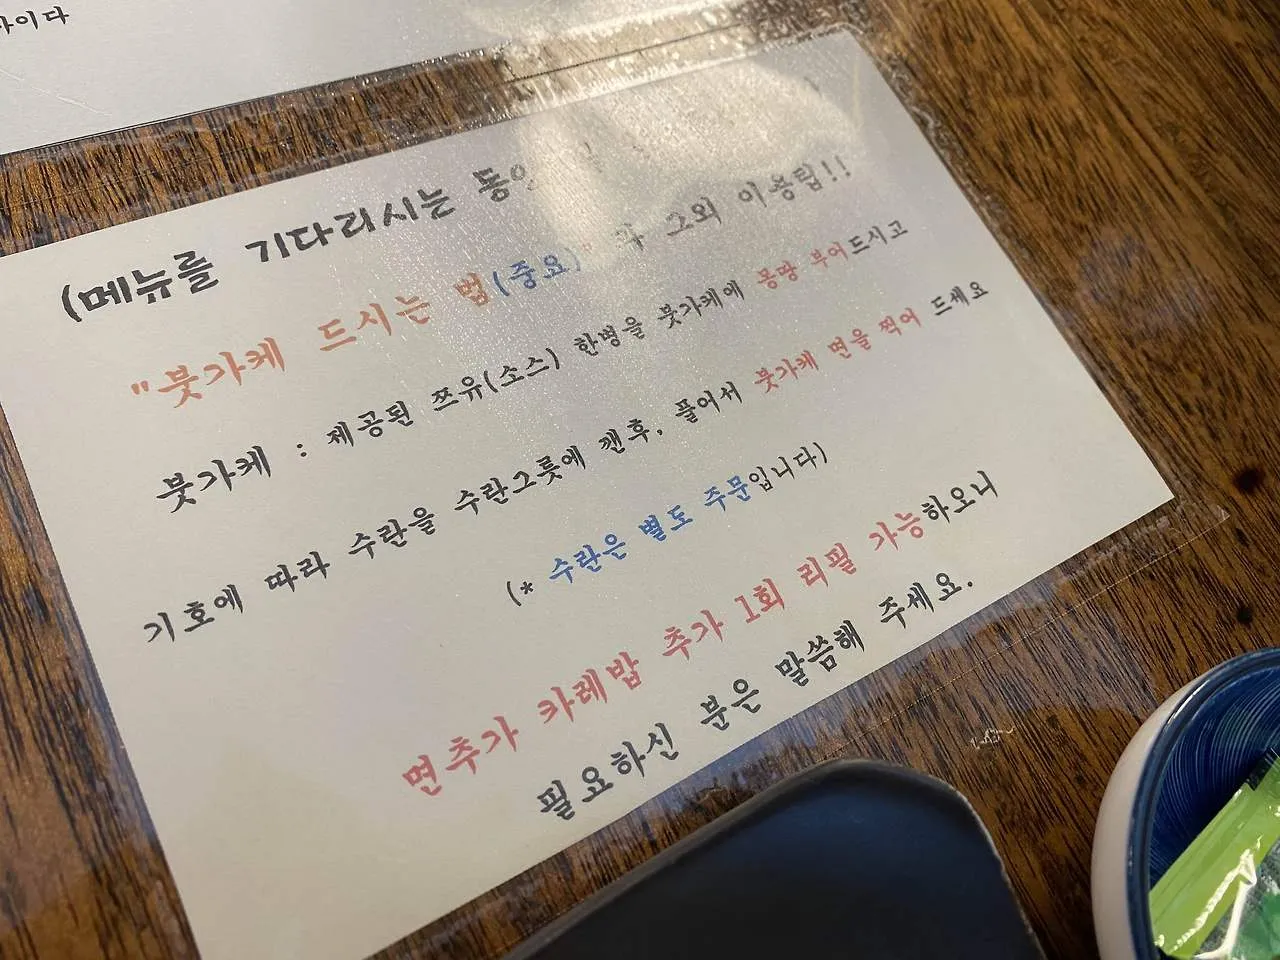 사이다
(메뉴를 기다리시는 동안
"붓가케 드시는 법(중요)" 과 그외 이용팁!!
붓가케 : 제공된 쯔유(소스) 한병을 붓가케에 몽땅 부어드시고
기호에 따라 수란을 수란그릇에 깬후, 풀어서 붓가케 면을 찍어 드세요
(* 수란은 별도 주문입니다)
면추가 카레밥 추가 1회 리필 가능하오니
필요하신 분은 말씀해 주세요.